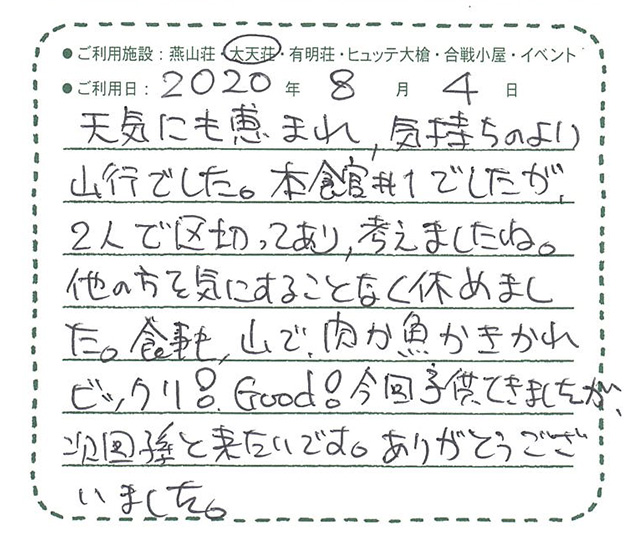 ●ご利用施設：燕山荘・大天荘・有明荘・ヒュッテ大槍・合戦小屋・イベント
●ご利用日：2020年8月4日
天気にも恵まれ,気持ちのより
山行でした。本館#1でしたが,
2人で区切ってあり,考えましたね。
他の方を気にすることなく休めまし
た。食事も,山で,肉か魚かきかれ
ビックリ! Good!今回子供できましたが,
次回孫と来たいです。ありがとうござ
いました。